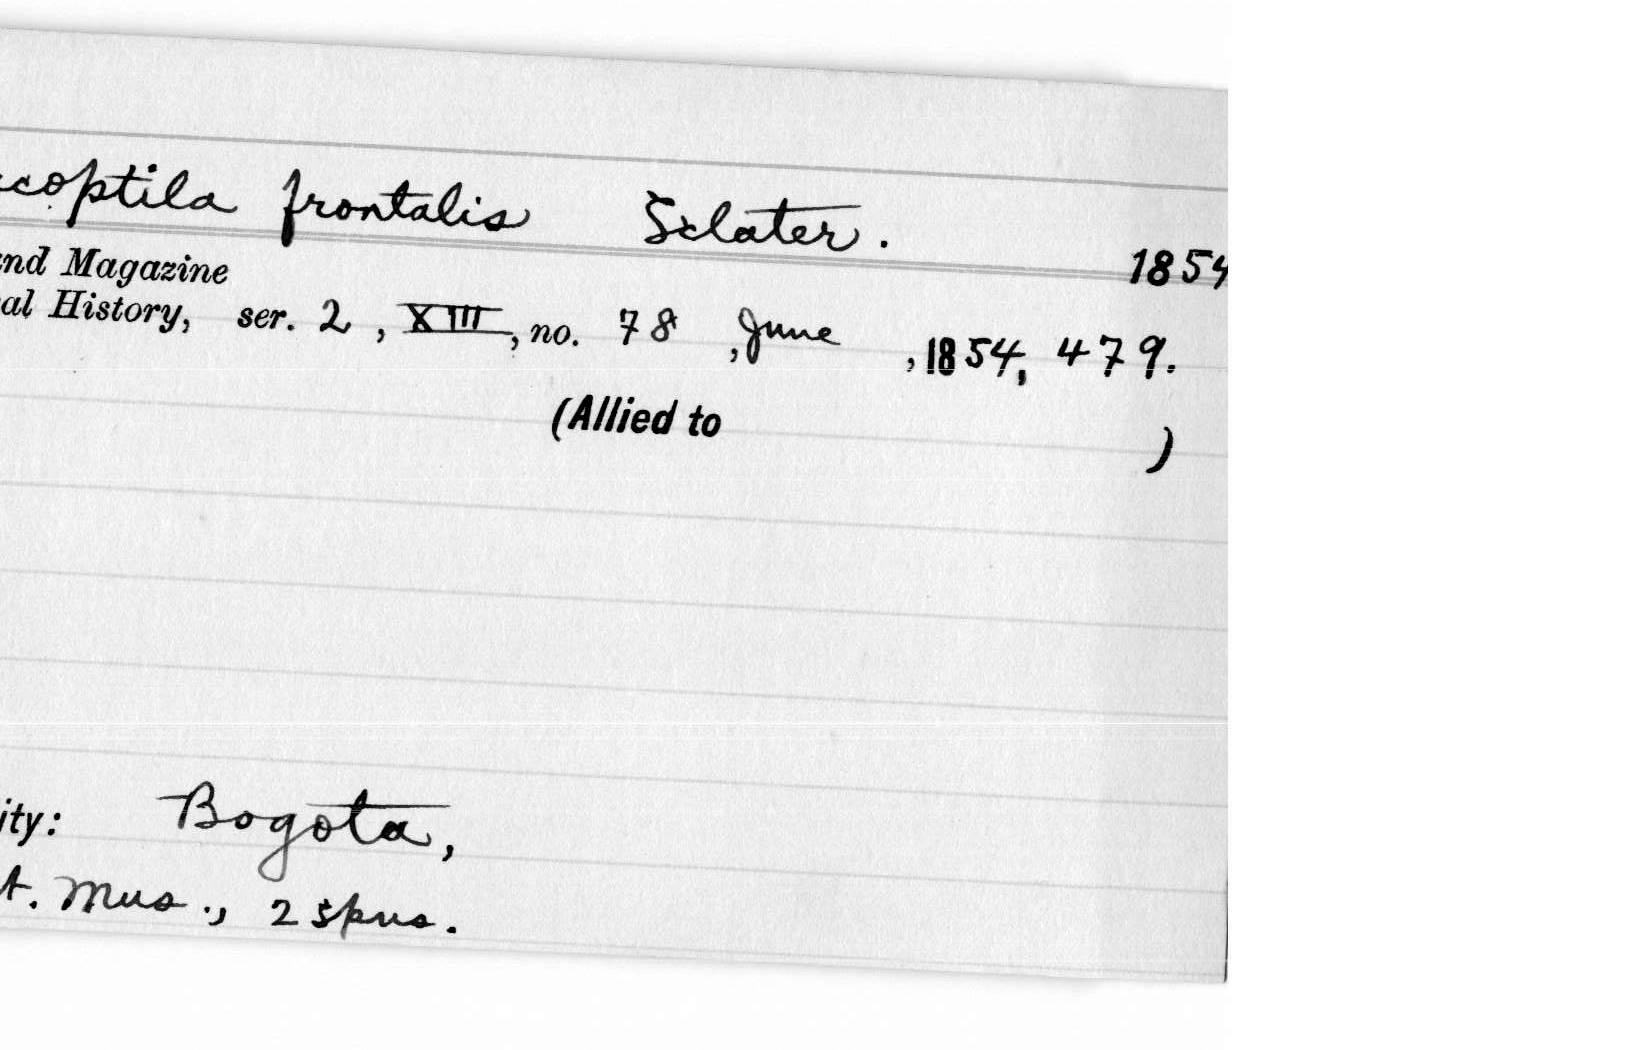 ccoptila frontalis Sclater.
1854
nd Magazine
al History, ser. 2, XIII, no. 78, June, 1854, 479.
(Allied to )
ity: Bogota,
t. Mus., 2 spns.